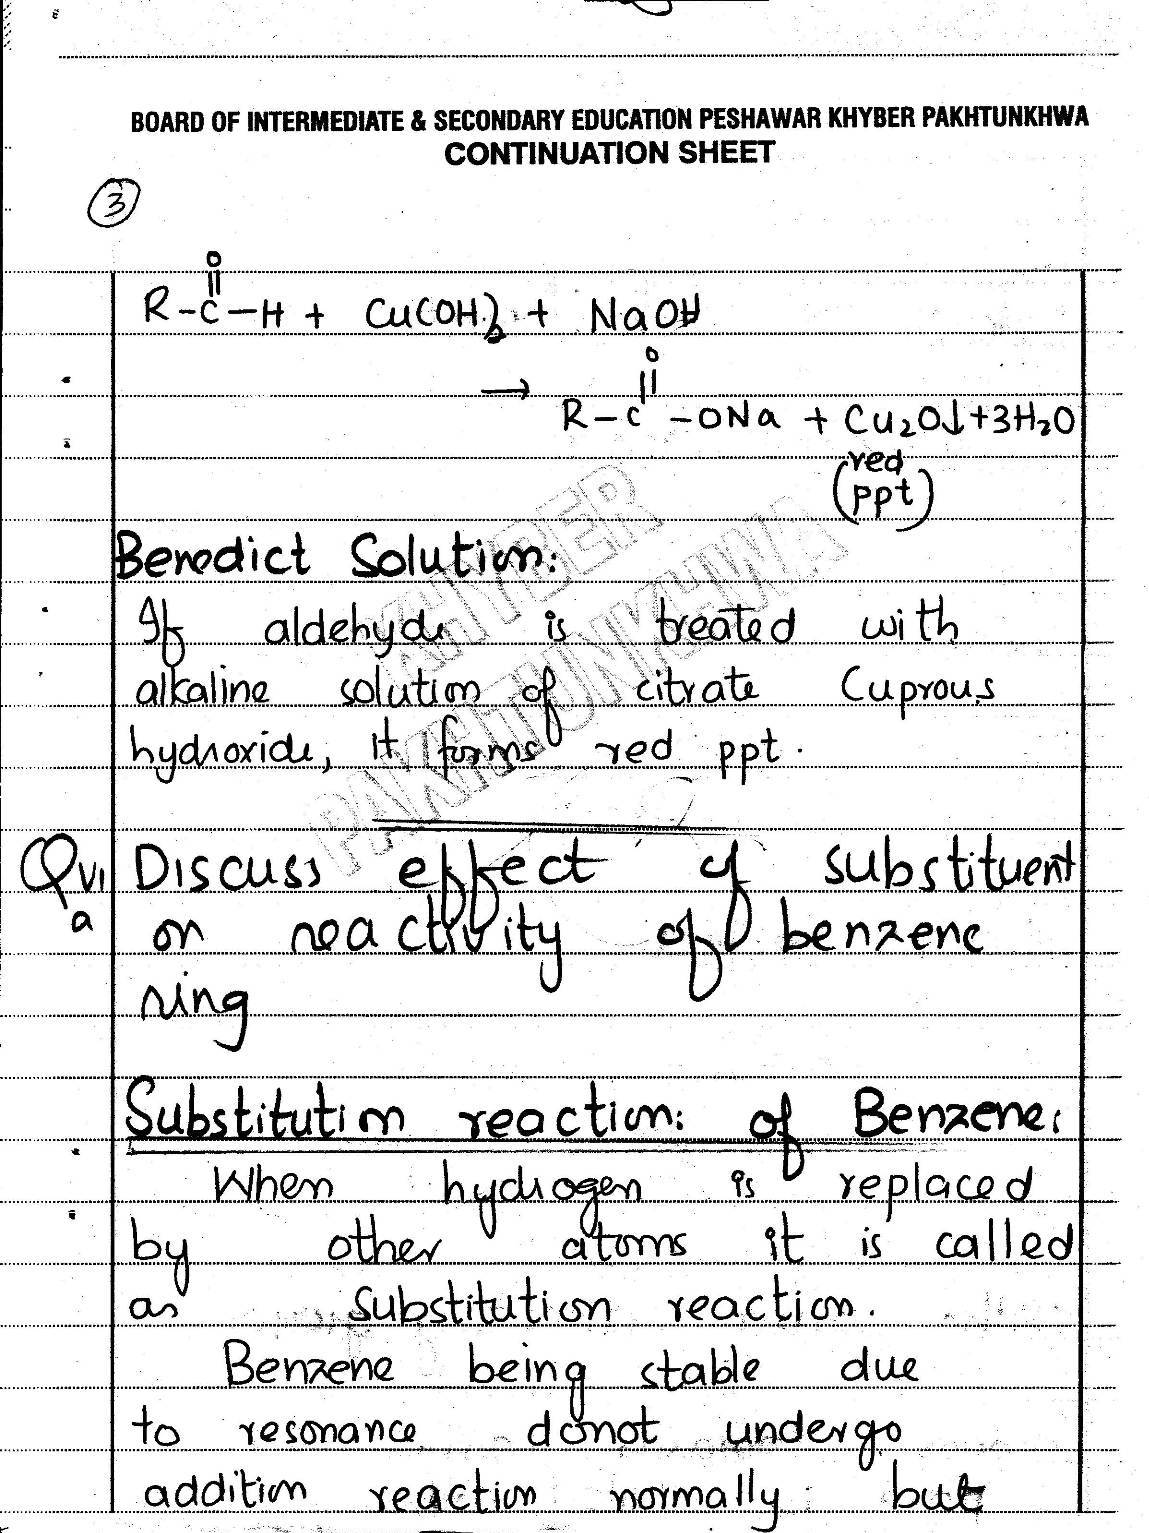 BOARD OF INTERMEDIATE & SECONDARY EDUCATION PESHAWAR KHYBER PAKHTUNKHWA
CONTINUATION SHEET
3
O
||
R-C-H + Cu(OH)2 + NaOH
O
||
→ R-C-ONa + Cu2O↓+3H2O
(red
ppt)
KHYBER
PAKHTUNKHWA
Benedict Solution:
If aldehyde is treated with
alkaline solution of citrate Cuprous
hydroxide, it forms red ppt.
QVI Discuss effect of substituent
a on reactivity of benzene
ring
Substitution reaction: of Benzene:
When hydrogen is replaced
by other atoms it is called
as substitution reaction.
Benzene being stable due
to resonance donot undergo
addition reaction normally but